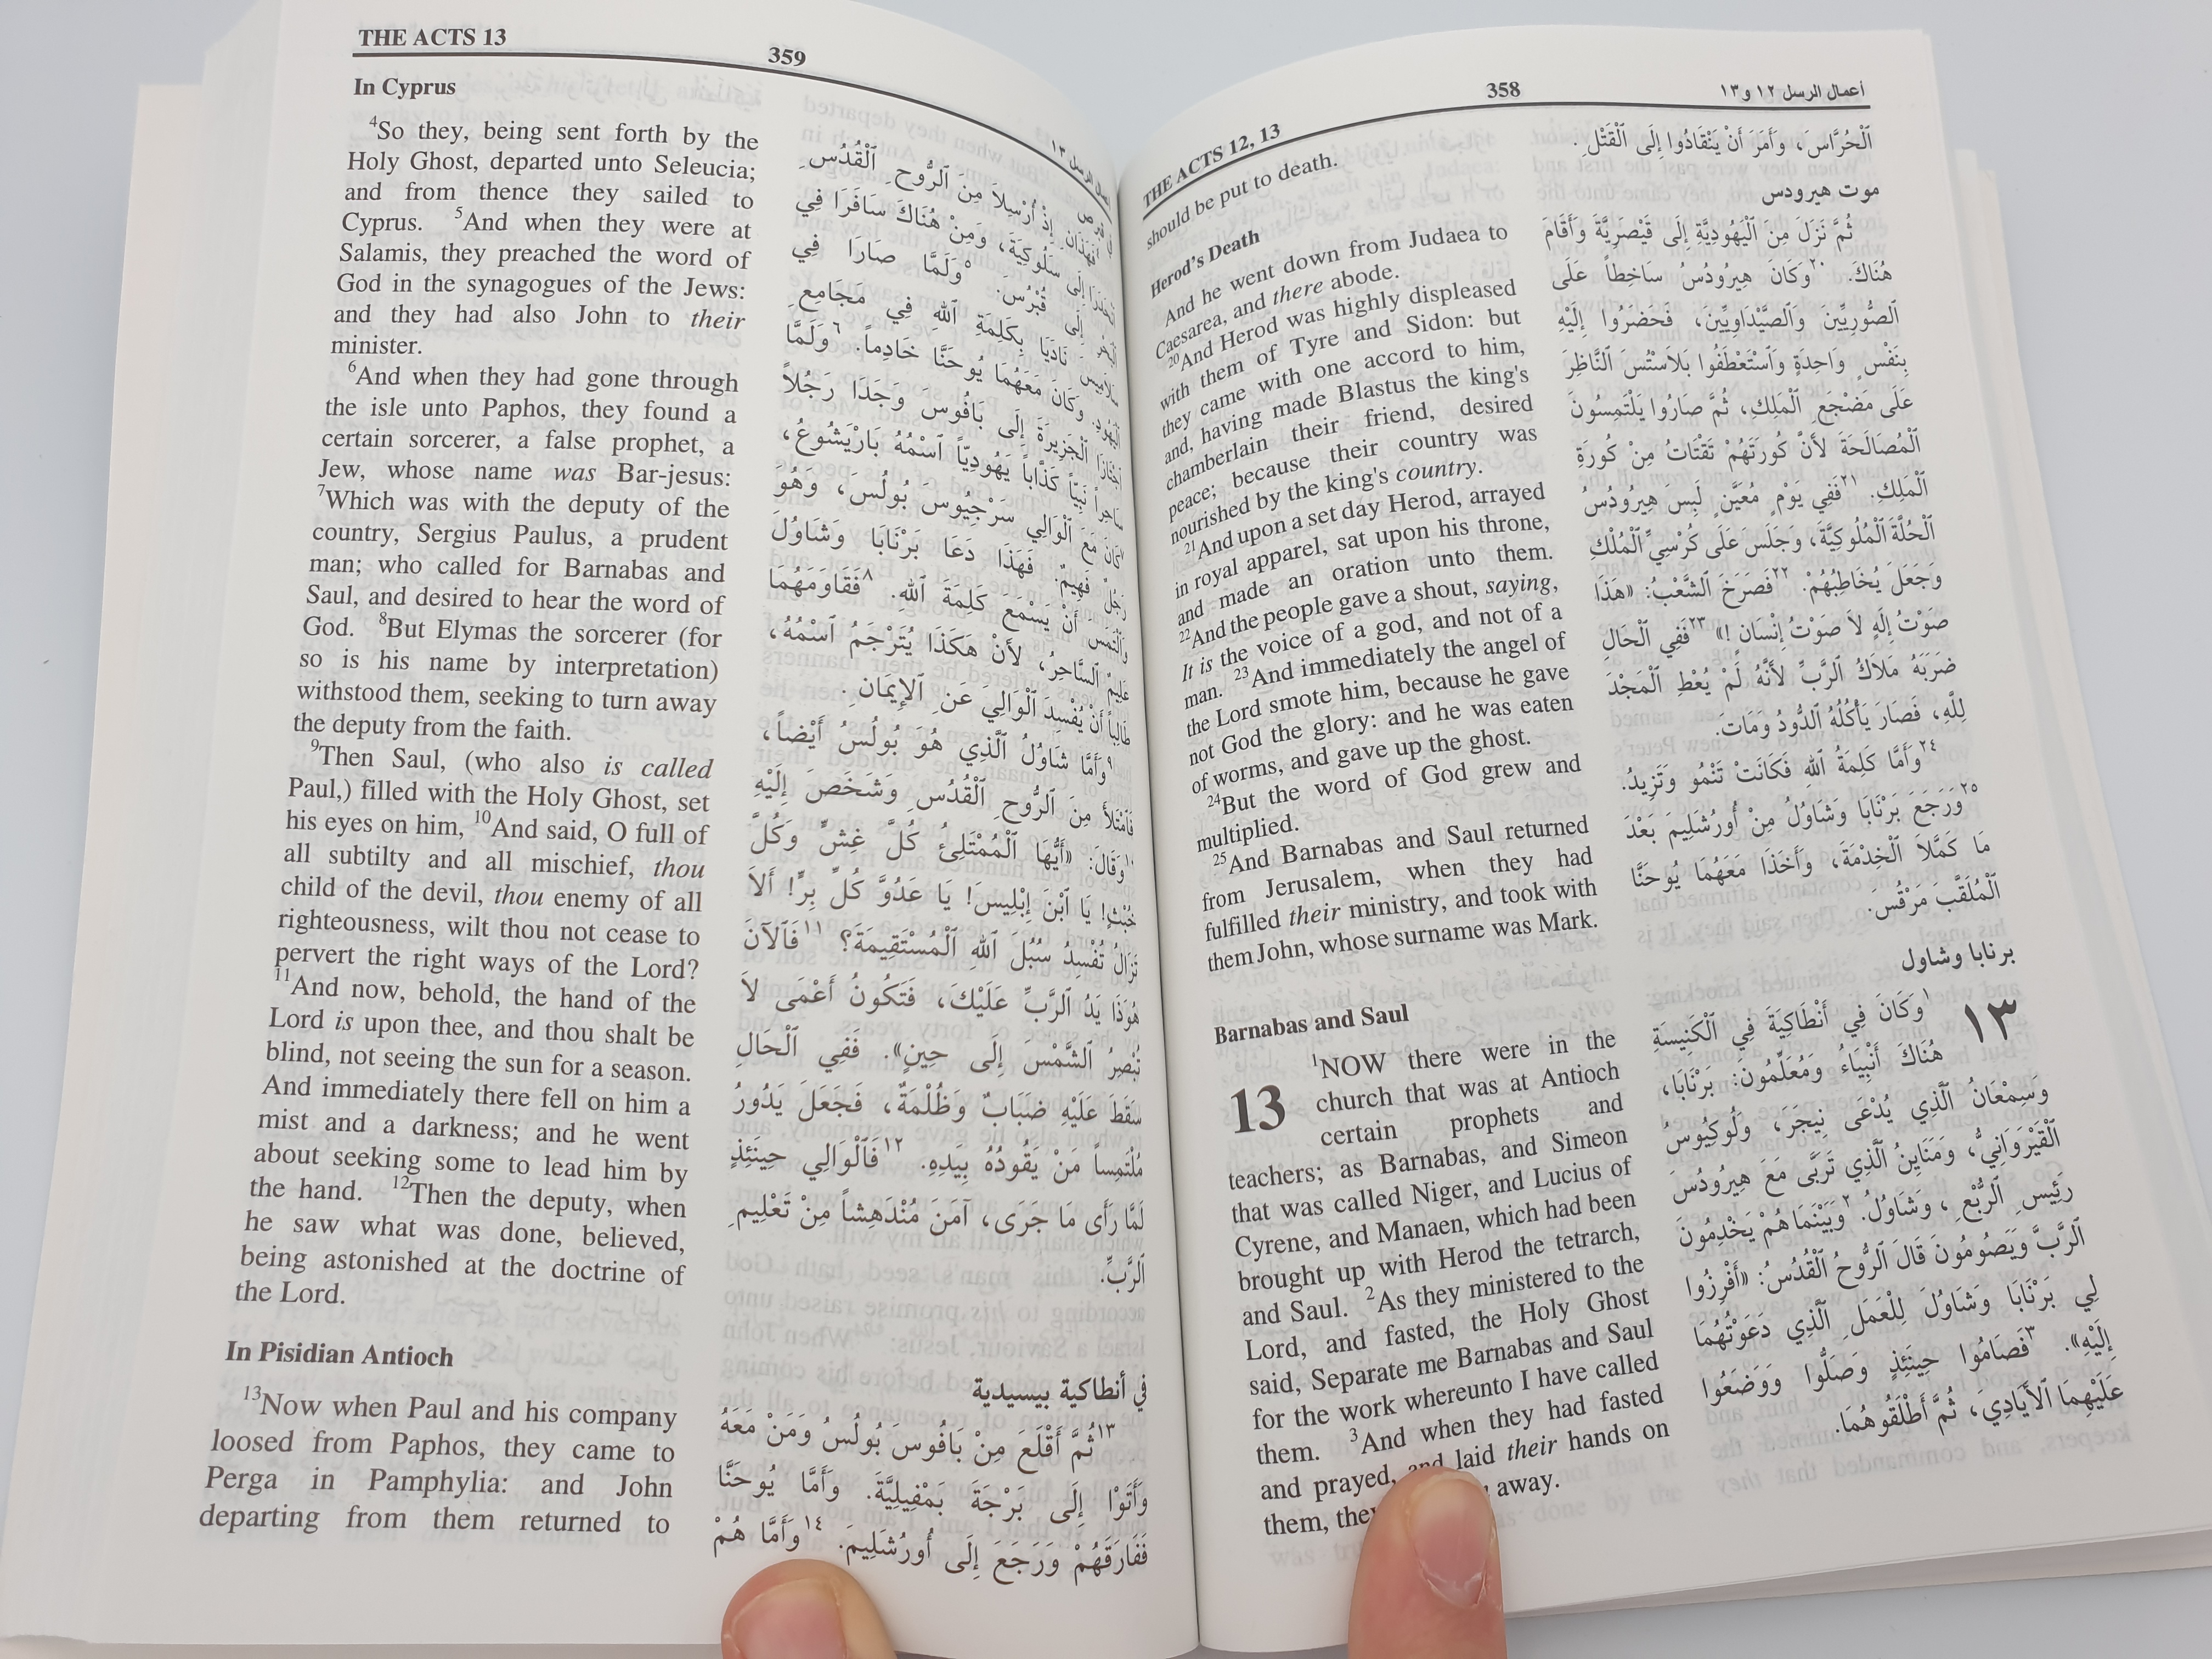 THE ACTS 12, 13
358
أعمال الرسل ١٢ و١٣
should be put to death.
Herod's Death
And he went down from Judaea to
Caesarea, and there abode.
20And Herod was highly displeased
with them of Tyre and Sidon: but
they came with one accord to him,
and, having made Blastus the king's
chamberlain their friend, desired
peace; because their country was
nourished by the king's country.
21And upon a set day Herod, arrayed
in royal apparel, sat upon his throne,
and made an oration unto them.
22And the people gave a shout, saying,
It is the voice of a god, and not of a
man. 23And immediately the angel of
the Lord smote him, because he gave
not God the glory: and he was eaten
of worms, and gave up the ghost.
24But the word of God grew and
multiplied.
25And Barnabas and Saul returned
from Jerusalem, when they had
fulfilled their ministry, and took with
them John, whose surname was Mark.
Barnabas and Saul
13
1NOW there were in the
church that was at Antioch
certain prophets and
teachers; as Barnabas, and Simeon
that was called Niger, and Lucius of
Cyrene, and Manaen, which had been
brought up with Herod the tetrarch,
and Saul. 2As they ministered to the
Lord, and fasted, the Holy Ghost
said, Separate me Barnabas and Saul
for the work whereunto I have called
them. 3And when they had fasted
and prayed, and laid their hands on
them, they away.
ٱلْحُرَّاسَ، وَأَمَرَ أَنْ يَنْقَادُوا إِلَى ٱلْقَتْلِ.
موت هيرودس
ثُمَّ نَزَلَ مِنَ ٱلْيَهُودِيَّةِ إِلَى قَيْصَرِيَّةَ وَأَقَامَ
هُنَاكَ. ٢٠وَكَانَ هِيرُودُسُ سَاخِطاً عَلَى
ٱلصُّورِيِّينَ وَٱلصَّيْدَاوِيِّينَ، فَحَضَرُوا إِلَيْهِ
بِنَفْسٍ وَاحِدَةٍ وَٱسْتَعْطَفُوا بَلاَسْتُسَ ٱلنَّاظِرَ
عَلَى مَضْجَعِ ٱلْمَلِكِ، ثُمَّ صَارُوا يَلْتَمِسُونَ
ٱلْمُصَالَحَةَ لأَنَّ كُورَتَهُمْ تَقْتَاتُ مِنْ كُورَةِ
ٱلْمَلِكِ. ٢١فَفِي يَوْمٍ مُعَيَّنٍ لَبِسَ هِيرُودُسُ
ٱلْحُلَّةَ ٱلْمُلُوكِيَّةَ، وَجَلَسَ عَلَى كُرْسِيِّ ٱلْمُلْكِ
وَجَعَلَ يُخَاطِبُهُمْ. ٢٢فَصَرَخَ ٱلشَّعْبُ: «هٰذَا
صَوْتُ إِلَهٍ لاَ صَوْتُ إِنْسَانٍ!» ٢٣فَفِي ٱلْحَالِ
ضَرَبَهُ مَلاَكُ ٱلرَّبِّ لأَنَّهُ لَمْ يُعْطِ ٱلْمَجْدَ
لِلّٰهِ، فَصَارَ يَأْكُلُهُ ٱلدُّودُ وَمَاتَ.
٢٤وَأَمَّا كَلِمَةُ ٱللّٰهِ فَكَانَتْ تَنْمُو وَتَزِيدُ.
٢٥وَرَجَعَ بَرْنَابَا وَشَاوُلُ مِنْ أُورُشَلِيمَ بَعْدَ
مَا كَمَّلاَ ٱلْخِدْمَةَ، وَأَخَذَا مَعَهُمَا يُوحَنَّا
ٱلْمُلَقَّبَ مَرْقُسَ.
برنابا وشاول
١٣
١وَكَانَ فِي أَنْطَاكِيَةَ فِي ٱلْكَنِيسَةِ
هُنَاكَ أَنْبِيَاءُ وَمُعَلِّمُونَ: بَرْنَابَا،
وَسِمْعَانُ ٱلَّذِي يُدْعَى نِيجَرَ، وَلُوكِيُوسُ
ٱلْقَيْرَوَانِيُّ، وَمَنَايِنُ ٱلَّذِي تَرَبَّى مَعَ هِيرُودُسَ
رَئِيسِ ٱلرُّبْعِ، وَشَاوُلُ. ٢وَبَيْنَمَا هُمْ يَخْدِمُونَ
ٱلرَّبَّ وَيَصُومُونَ قَالَ ٱلرُّوحُ ٱلْقُدُسُ: «أَفْرِزُوا
لِي بَرْنَابَا وَشَاوُلَ لِلْعَمَلِ ٱلَّذِي دَعَوْتُهُمَا
إِلَيْهِ». ٣فَصَامُوا حِينَئِذٍ وَصَلُّوا وَوَضَعُوا
عَلَيْهِمَا ٱلأَيَادِيَ، ثُمَّ أَطْلَقُوهُمَا.
THE ACTS 13
359
الرسل ١٣
In Cyprus
4So they, being sent forth by the
Holy Ghost, departed unto Seleucia;
and from thence they sailed to
Cyprus. 5And when they were at
Salamis, they preached the word of
God in the synagogues of the Jews:
and they had also John to their
minister.
6And when they had gone through
the isle unto Paphos, they found a
certain sorcerer, a false prophet, a
Jew, whose name was Bar-jesus:
7Which was with the deputy of the
country, Sergius Paulus, a prudent
man; who called for Barnabas and
Saul, and desired to hear the word of
God. 8But Elymas the sorcerer (for
so is his name by interpretation)
withstood them, seeking to turn away
the deputy from the faith.
9Then Saul, (who also is called
Paul,) filled with the Holy Ghost, set
his eyes on him, 10And said, O full of
all subtilty and all mischief, thou
child of the devil, thou enemy of all
righteousness, wilt thou not cease to
pervert the right ways of the Lord?
11And now, behold, the hand of the
Lord is upon thee, and thou shalt be
blind, not seeing the sun for a season.
And immediately there fell on him a
mist and a darkness; and he went
about seeking some to lead him by
the hand. 12Then the deputy, when
he saw what was done, believed,
being astonished at the doctrine of
the Lord.
In Pisidian Antioch
13Now when Paul and his company
loosed from Paphos, they came to
Perga in Pamphylia: and John
departing from them returned to
فَهٰذَانِ إِذْ أُرْسِلاَ مِنَ ٱلرُّوحِ ٱلْقُدُسِ
إِلَى سَلُوكِيَةَ، وَمِنْ هُنَاكَ سَافَرَا فِي
إِلَى قُبْرُسَ. ٥وَلَمَّا صَارَا فِي
نَادَيَا بِكَلِمَةِ ٱللّٰهِ فِي مَجَامِعِ
وَكَانَ مَعَهُمَا يُوحَنَّا خَادِماً. ٦وَلَمَّا
ٱلْجَزِيرَةَ إِلَى بَافُوسَ وَجَدَا رَجُلاً
نَبِيّاً كَذَّاباً يَهُودِيّاً ٱسْمُهُ بَارْيَشُوعُ،
كَانَ مَعَ ٱلْوَالِي سَرْجِيُوسَ بُولُسَ، وَهُوَ
رَجُلٌ فَهِيمٌ. فَهٰذَا دَعَا بَرْنَابَا وَشَاوُلَ
وَٱلْتَمَسَ أَنْ يَسْمَعَ كَلِمَةَ ٱللّٰهِ. ٨فَقَاوَمَهُمَا
عَلِيمٌ ٱلسَّاحِرُ، لأَنْ هٰكَذَا يُتَرْجَمُ ٱسْمُهُ،
طَالِباً أَنْ يُفْسِدَ ٱلْوَالِيَ عَنِ ٱلإِيمَانِ.
٩وَأَمَّا شَاوُلُ ٱلَّذِي هُوَ بُولُسُ أَيْضاً،
فَٱمْتَلأَ مِنَ ٱلرُّوحِ ٱلْقُدُسِ وَشَخَصَ إِلَيْهِ
١٠وَقَالَ: «أَيُّهَا ٱلْمُمْتَلِئُ كُلَّ غِشٍّ وَكُلَّ
خُبْثٍ! يَا ٱبْنَ إِبْلِيسَ! يَا عَدُوَّ كُلِّ بِرٍّ! أَلاَ
تَزَالُ تُفْسِدُ سُبُلَ ٱللّٰهِ ٱلْمُسْتَقِيمَةَ؟ ١١فَٱلآنَ
هُوَذَا يَدُ ٱلرَّبِّ عَلَيْكَ، فَتَكُونُ أَعْمَى لاَ
تُبْصِرُ ٱلشَّمْسَ إِلَى حِينٍ». فَفِي ٱلْحَالِ
سَقَطَ عَلَيْهِ ضَبَابٌ وَظُلْمَةٌ، فَجَعَلَ يَدُورُ
مُلْتَمِساً مَنْ يَقُودُهُ بِيَدِهِ. ١٢فَٱلْوَالِي حِينَئِذٍ
لَمَّا رَأَى مَا جَرَى، آمَنَ مُنْدَهِشاً مِنْ تَعْلِيمِ
ٱلرَّبِّ.
في أنطاكية بيسيدية
١٣ثُمَّ أَقْلَعَ مِنْ بَافُوسَ بُولُسُ وَمَنْ مَعَهُ
وَأَتَوْا إِلَى بَرْجَةَ بَمْفِيلِيَّةَ. وَأَمَّا يُوحَنَّا
فَفَارَقَهُمْ وَرَجَعَ إِلَى أُورُشَلِيمَ. ١٤وَأَمَّا هُمْ